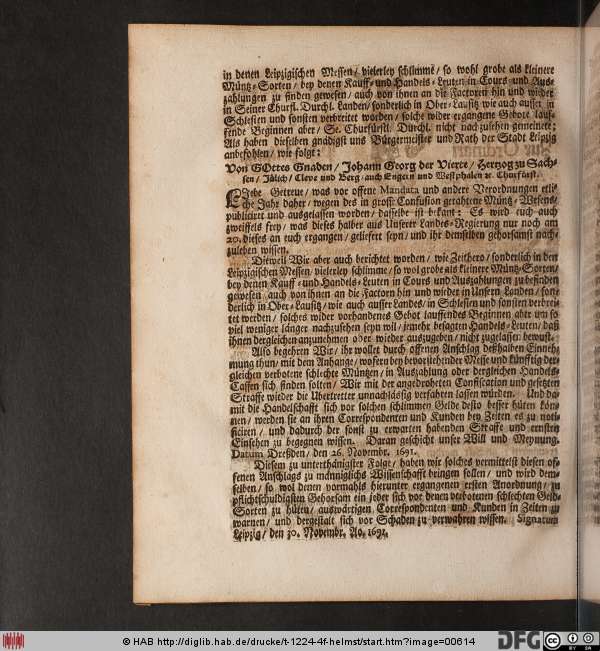 in denen Leipzigischen Messen / vielerley schlimme / so wohl grobe als kleinere
Müntz-Sorten / bey denen Kauff- und Handels-Leuten in Cours und Aus-
zahlungen zu finden gewesen / auch von ihnen an die Factoren hin und wieder
in Seiner Churfl. Durchl. Landen / sonderlich in Ober-Lausitz wie auch ausser in
Schlesien und sonsten verbreitet worden / solche wider ergangene Gebote lauf-
fende Beginnen aber / Se. Churfürstl. Durchl. nicht nachzusehen gemeinet;
Als haben dieselben gnädigst uns Bürgermeister und Rath der Stadt Leipzig
anbefohlen / wie folget:
Von GOttes Gnaden / Johann Georg der Vierte / Hertzog zu Sach-
sen / Jülich / Cleve und Berg / auch Engern und Westphalen ꝛc. Churfürst.
LIebe Getreue / was vor offene Mandata und andere Verordnungen etli-
che Jahr daher / wegen des in grosse Confusion gerathene Müntz-Wesens /
publiciret und ausgelassen worden / dasselbe ist bekant: Es wird euch auch
zweiffels frey / was dieses halber aus Unserer Landes-Regierung nur noch am
20. dieses an euch ergangen / geliefert seyn / und ihr demselben gehorsamst nach-
zuleben wissen.
Dieweil Wir aber auch berichtet worden / wie Zeithero / sonderlich in den
Leipzigischen Messen / vielerley schlimme / so wol grobe als kleinere Müntz-Sorten /
bey denen Kauff- und Handels-Leuten in Cours und Auszahlungen zu befinden
gewesen / auch von ihnen an die Factorn hin und wieder in Unsern Landen / son-
derlich in Ober-Lausitz / wie auch ausser Landes / in Schlesien und sonsten verbrei-
tet werden / solches wider vorhandenes Gebot lauffendes Beginnen aber um so
viel weniger länger nachzusehen seyn wil / jemehr besagten Handels-Leuten / daß
ihnen dergleichen anzunehmen oder wieder auszugeben / nicht zugelassen bewust.
Also begehren Wir / ihr wollet durch offenen Anschlag deßhalben Erinne-
rung thun / mit dem Anhange / wofern bey bevorstehender Messe und künfftig der-
gleichen verbotene schlechte Müntzen / in Auszahlung oder dergleichen Handels-
Cassen sich finden solten / Wir mit der angedroheten Confiscation und gesetzten
Straffe wieder die Ubertretter unnachlässig verfahren lassen würden. Und da-
mit die Handelschafft sich vor solchen schlimmen Gelde desto besser hüten kön-
nen / werden sie an ihren Correspondenten und Kunden bey Zeiten es zu noti-
ficiren / und dadurch der sonst zu erwarten habenden Straffe und ernsten
Einsehen zu begegnen wissen. Daran geschicht unser Will und Meynung.
Datum Dreßden / den 26. Novembr. 1691.
Diesem zu unterthänigster Folge / haben wir solches vermittelst dieser of-
fenen Anschlags zu männigliches Wissenschafft bringen sollen / und wird dem-
selben / so wol denen vormahls hierunter ergangenen ersten Anordnung / zu
pflichtschuldigsten Gehorsam ein jeder sich vor denen verbotenen schlechten Geld-
Sorten zu hüten / auswärtigen Correspondenten und Kunden in Zeiten zu
warnen / und dergestalt sich vor Schaden zu verwahren wissen. Signatum
Leipzig / den 30. Novembr. Ao. 1691.
© HAB http://diglib.hab.de/drucke/t-1224-4f-helmst/start.htm?image=00614
DFG
cc
BY SA